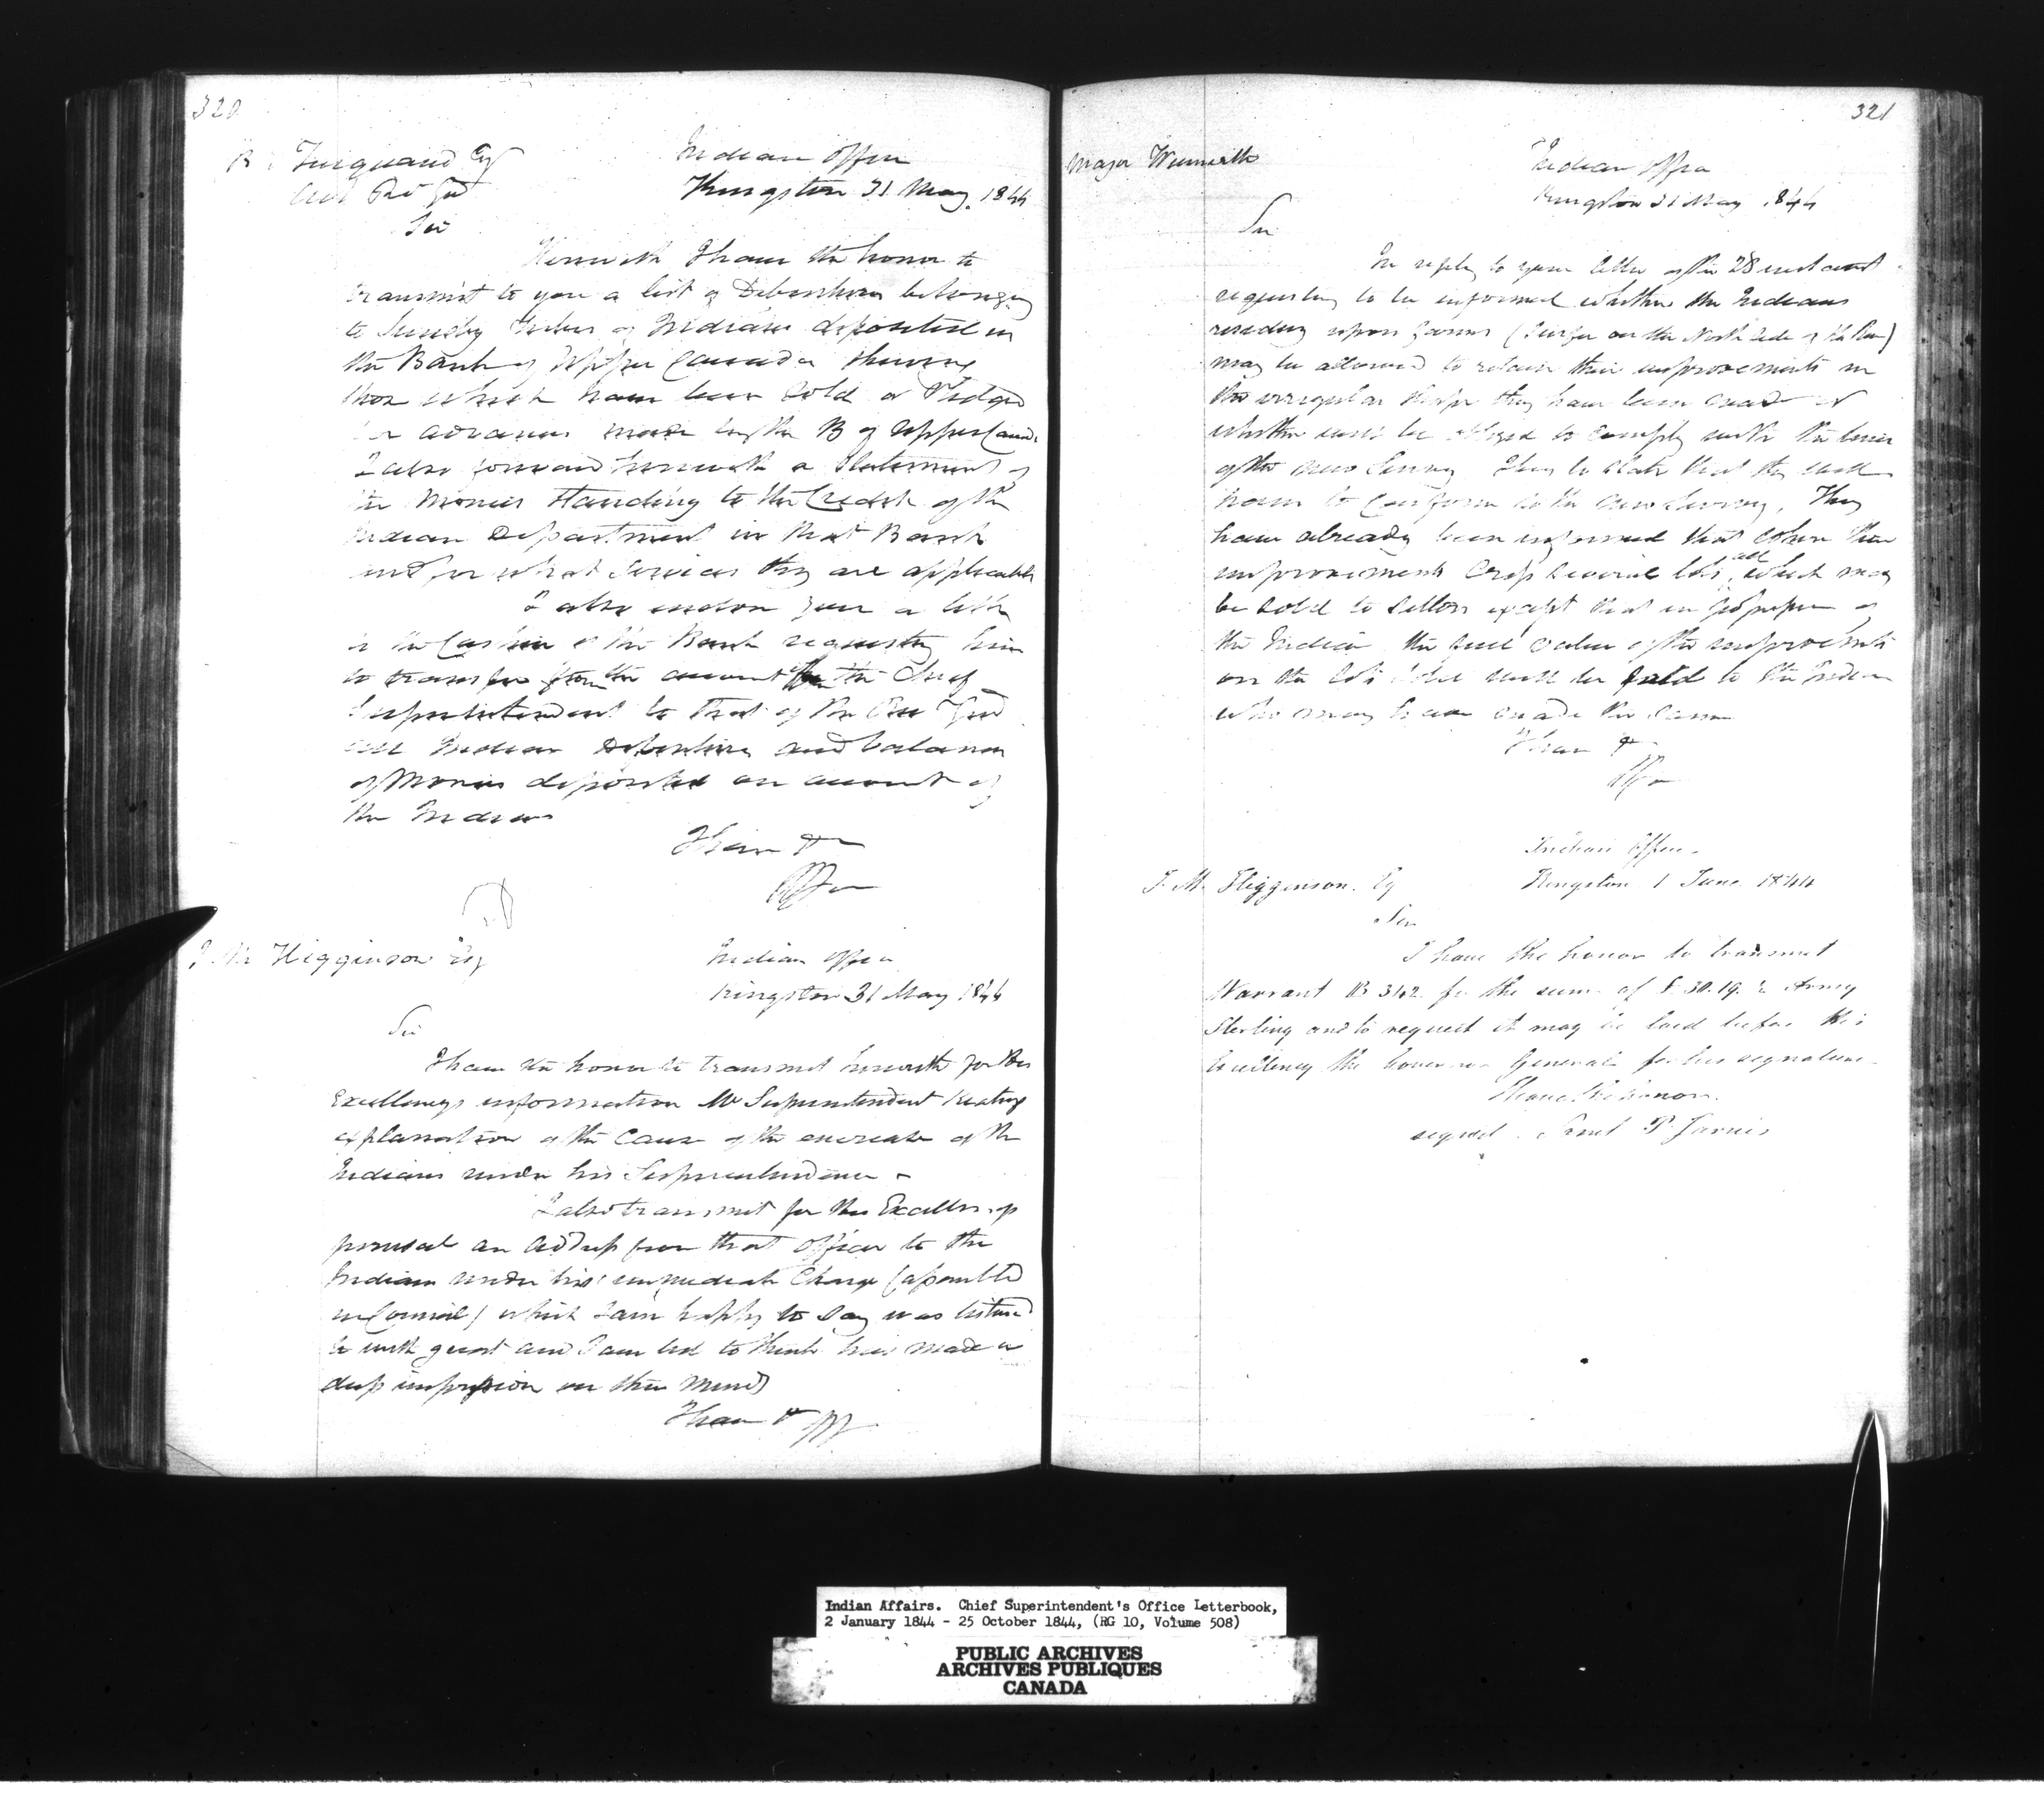 320
B Turquand Esq
Indian Office
Kingston 31 May 1844
Sir
Herewith I have the honor to
transmit to you a list of Debentures belonging
to Sundry Tribes of Indians deposited in
the Bank of Upper Canada shewing
those which have been Sold or Pledged
for advances made by the B of Upper Canada
I also forward herewith a Statement of
the Monies Standing to the Credit of the
Indian Department in that Bank
and for what Services they are applicable
I also enclose you a letter
to the Cashier of the Bank requesting him
to transfer from the account of the Chief
Superintendent to that of the Rec Genl
all Indian Debentures and balances
of Monies deposited on account of
the Indians
I have &c
J. M. Higginson Esq
Indian Office
Kingston 31 May 1844
Sir
I have the honor to transmit herewith for His
Excellency's information Mr Superintendent Keating
explanation of the Cause of the encrease of the
Indians under his Superintendence
I also transmit for His Excellency's
perusal an address from that officer to the
Indians under his immediate Charge (assembled
in Council) which I am happy to Say was listened
to with great and I am led to think has made a
deep impression on their Minds
I have &c
321
Major Winniett
Indian Office
Kingston 31 May 1844
Sir
In reply to your letter of the 28 instant
requesting to be informed whether the Indians
residing upon farms ( on the North Side of the River)
may be allowed to retain their improvements in
the irregular shape they have been made or
whether must be obliged to comply with the lines
of the new Survey I beg to State that they will
have to Conform to the new Survey. They
have already been informed that when their
improvements Cross several lots, all which may
be sold to settlers except that in possession of
the Indian the full value of the improvements
on the lots Sold will be paid to the Indian
who may have made the Same
I have &c
Indian Office
J. M. Higginson. Esq
Kingston 1 June 1844
Sir
I have the honor to transmit
Warrant B 342 for the sum of £30.19.2 Army
Sterling and to request it may be laid before His
Excellency the Governor General for his signature
I have the honor
signed Saml P Jarvis
Indian Affairs. Chief Superintendent's Office Letterbook,
2 January 1844 - 25 October 1844, (RG 10, Volume 508)
PUBLIC ARCHIVES
ARCHIVES PUBLIQUES
CANADA